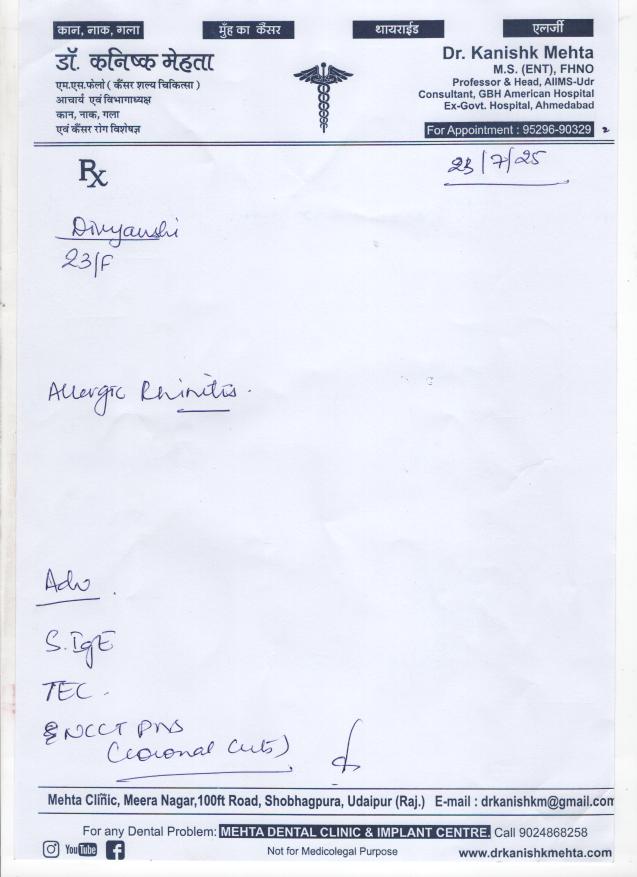 कान, नाक, गला
मुँह का कैंसर
थायराईड
एलर्जी
डॉ. कनिष्क मेहता
एम.एस.फेलो ( कैंसर शल्य चिकित्सा )
आचार्य एवं विभागाध्यक्ष
कान, नाक, गला
एवं कैंसर रोग विशेषज्ञ
Dr. Kanishk Mehta
M.S. (ENT), FHNO
Professor & Head, AIIMS-Udr
Consultant, GBH American Hospital
Ex-Govt. Hospital, Ahmedabad
For Appointment : 95296-90329 2
Rx
23/7/25
Divyanshi
23/F
Allergic Rhinitis.
Adv.
S.IgE
TEC.
NCCT PNS
(Coronal cuts)
Mehta Clinic, Meera Nagar,100ft Road, Shobhagpura, Udaipur (Raj.) E-mail : drkanishkm@gmail.com
For any Dental Problem: MEHTA DENTAL CLINIC & IMPLANT CENTRE. Call 9024868258
YouTube
Not for Medicolegal Purpose
www.drkanishkmehta.com